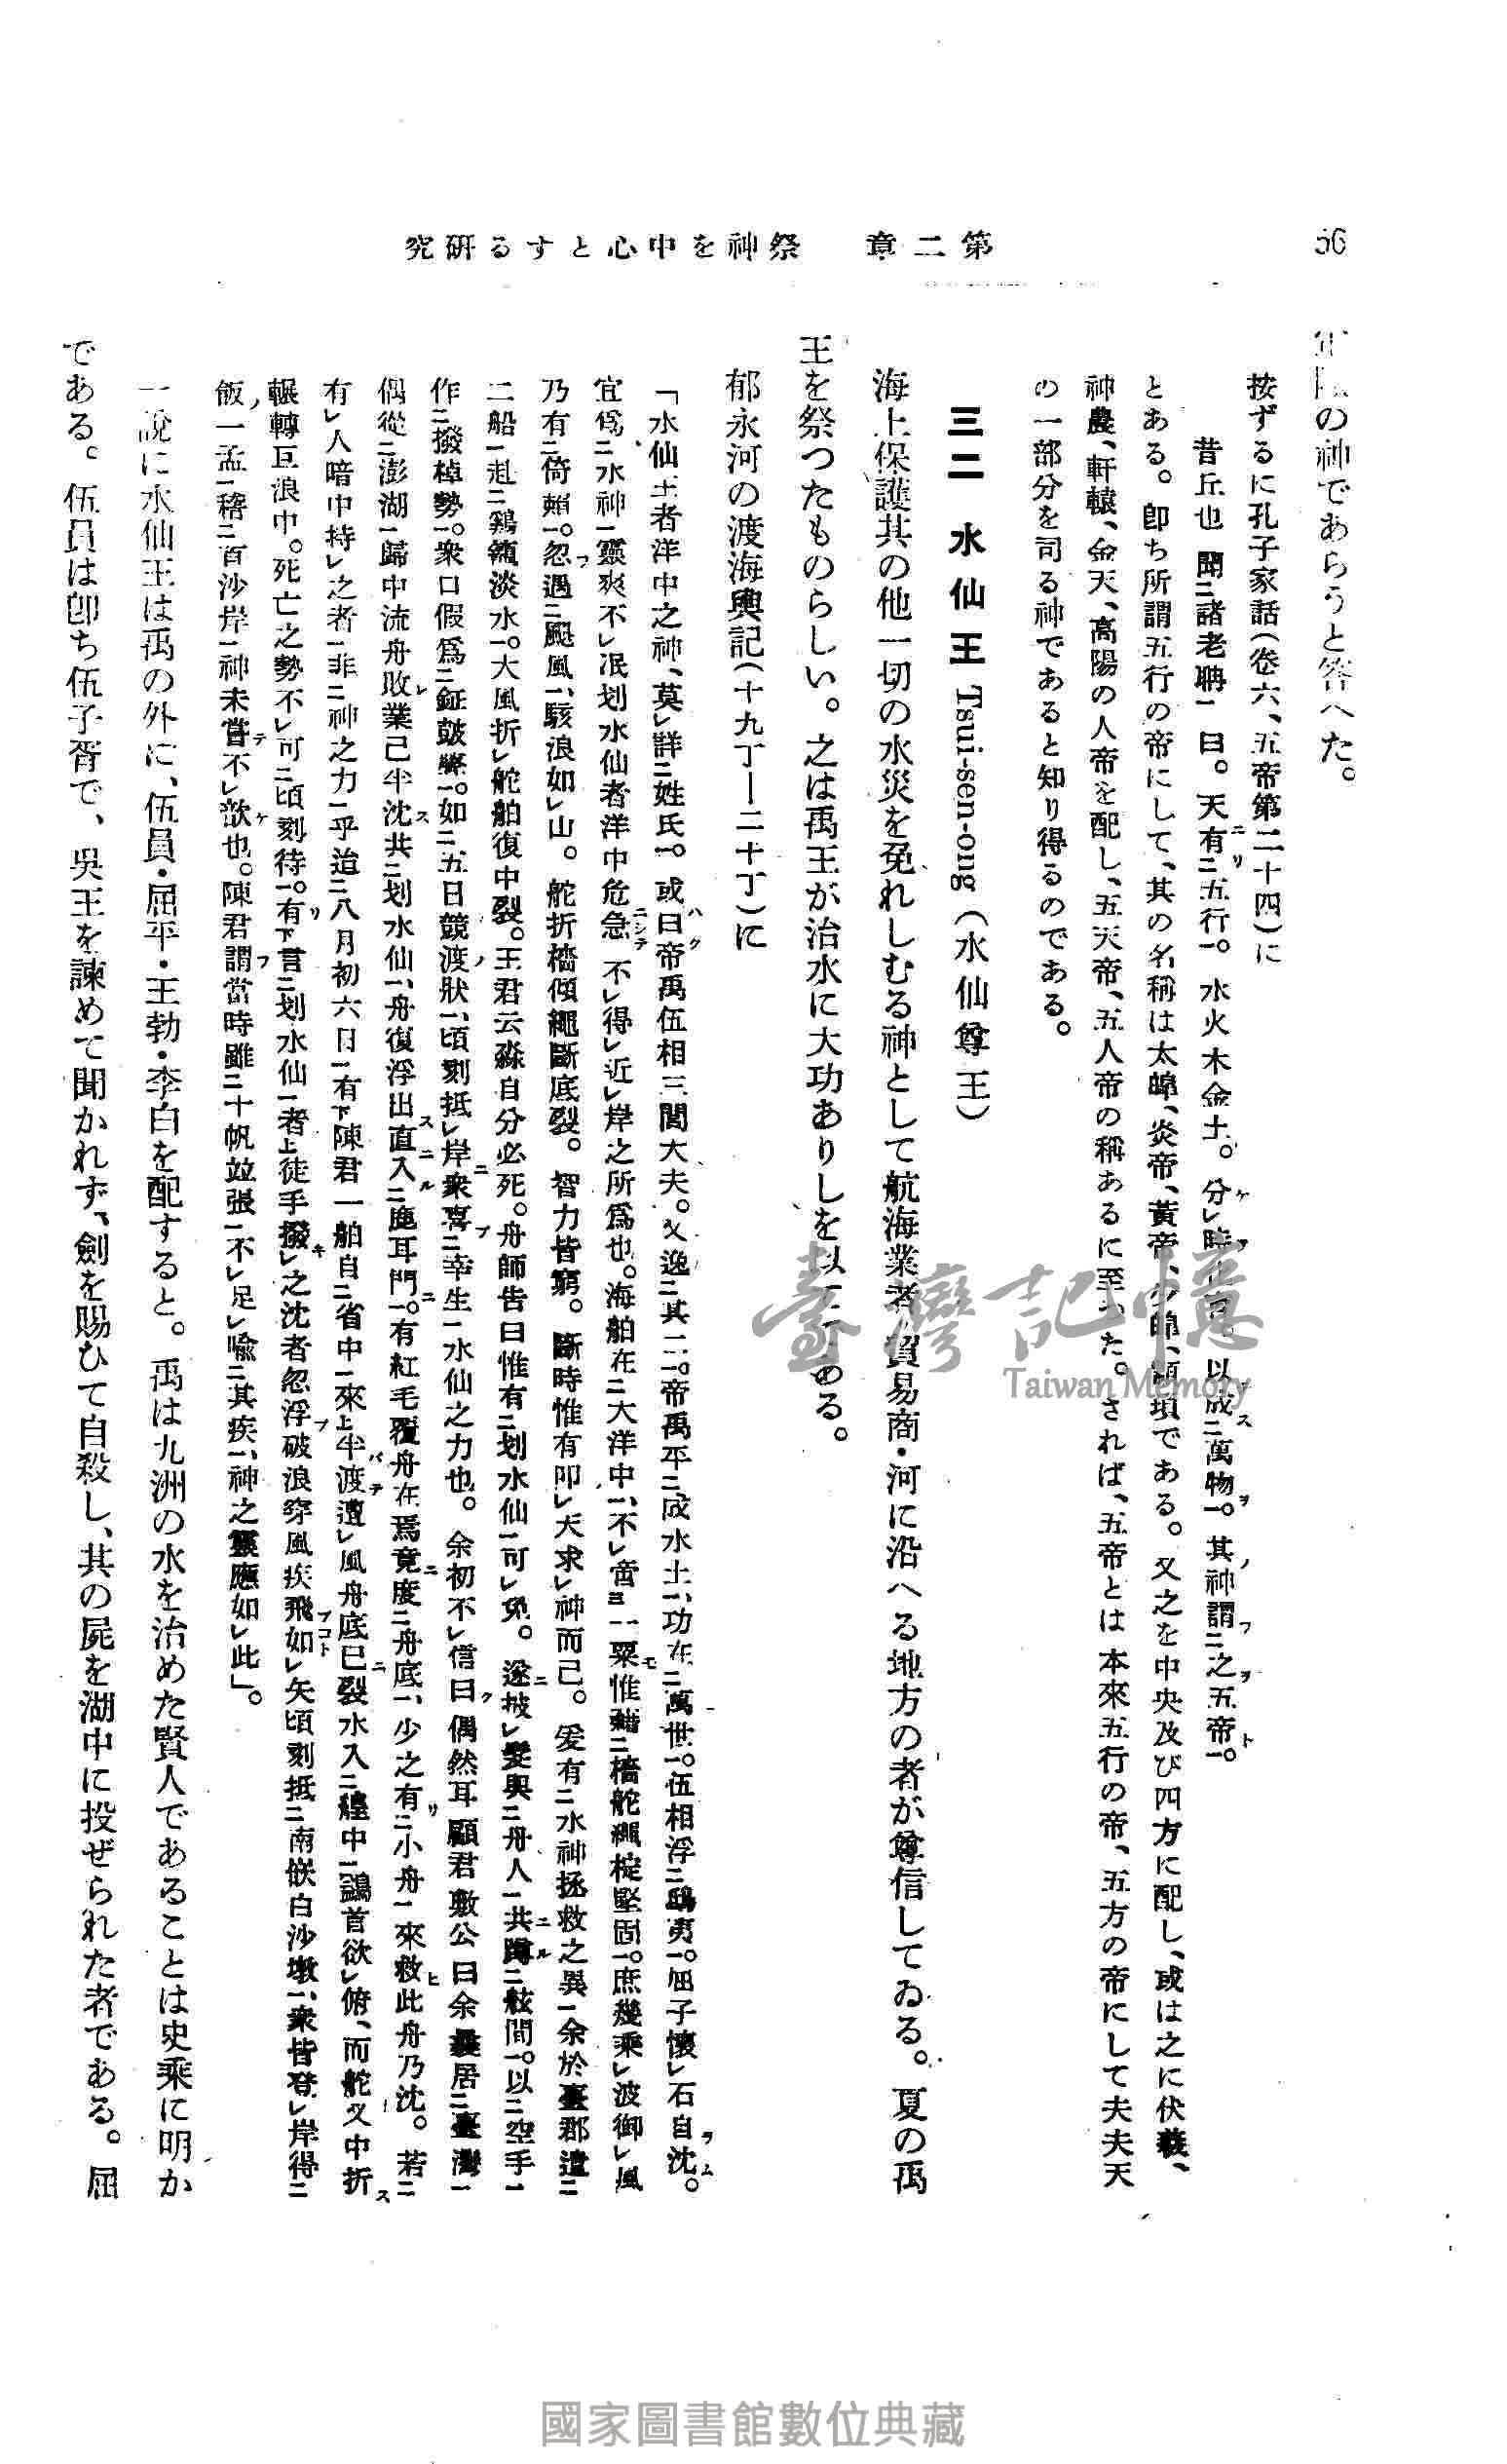 56
第二章　祭神を中心とする研究
の神であらうと答へた。
按ずるに孔子家話(卷六、五帝第二十四)に
昔丘也　聞二諸老聃一　曰。天有二五行一。水火木金土。分レ時 以成二萬物一。其神謂二之五帝一。
とある。卽ち所謂五行の帝にして、其の名稱は太皥、炎帝、黃帝、少皥、顓頊である。又之を中央及び四方に配し、或は之に伏羲、
神農、軒轅、金天、高陽の人帝を配し、五天帝、五人帝の稱あるに至つた。されば、五帝とは本來五行の帝、五方の帝にして夫夫天
の一部分を司る神であると知り得るのである。
三二　水仙王 Tsui-sen-ong (水仙尊王)
海上保護其の他一切の水災を免れしむる神として航海業者・貿易商・河に沿へる地方の者が尊信してゐる。夏の禹
王を祭つたものらしい。之は禹王が治水に大功ありしを以てである。
郁永河の渡海輿記(十九丁—二十丁)に
「水仙王者洋中之神、莫レ詳二姓氏一。或曰帝禹伍相三閭大夫。又逸二其二一。帝禹平二成水土一、功在二萬世一。伍相浮二鴟夷一。屈子懷レ石自沈。
宜爲二水神一靈爽不レ泯划水仙者洋中危急 不レ得レ近レ岸之所爲也。海舶在二大洋中一、不レ啻三一粟惟藉二檣舵繩椗堅固一。庶幾乘レ波御レ風
乃有二倚賴一。忽遇二颶風一、駭浪如レ山。舵折檣傾繩斷底裂。智力皆窮。斯時惟有叩レ天求レ神而已。爰有二水神拯救之異一余於臺郡遣二
二船一赴二鷄籠淡水一。大風折レ舵舶復中裂。王君云淼自分必死。舟師告曰惟有二划水仙一可レ免。遂披レ髮與二舟人一共蹲二舷間一。以二空手一
作二撥棹勢一。衆口假爲二鉦鼓聲一。如二五日競渡狀一、頃刻抵レ岸衆喜二幸生一水仙之力也。余初不レ信曰偶然耳顧君敷公曰余曩居二臺灣一
偶從二澎湖一歸中流舟敗業已半沈共二划水仙一、舟復浮出直入二鹿耳門一。有紅毛覆舟在焉竟度二舟底一、少之有二小舟一來救此舟乃沈。若二
有レ人暗中持レ之者一非二神之力一乎迨二八月初六日一有下陳君一舶自二省中一來上半渡遭レ風舟底已裂水入二艎中一鷁首欲レ俯、而舵又中折
輾轉巨浪中。死亡之勢不レ可二頃刻待一。有下言二划水仙一者上徒手撥レ之沈者忽浮破浪穿風疾飛如レ矢頃刻抵二南嵌白沙墩一、衆皆登レ岸得二
飯一盂一稽二首沙岸一神未嘗不レ歆也。陳君謂當時雖二十帆竝張一不レ足レ喩二其疾一、神之靈應如レ此」。
一說に水仙王は禹の外に、伍員・屈平・王勃・李白を配すると。禹は九洲の水を治めた賢人であることは史乘に明か
である。伍員は卽ち伍子胥で、吳王を諫めて聞かれず、劍を賜ひて自殺し、其の屍を湖中に投ぜられた者である。屈
臺灣記憶
Taiwan Memory
國家圖書館數位典藏